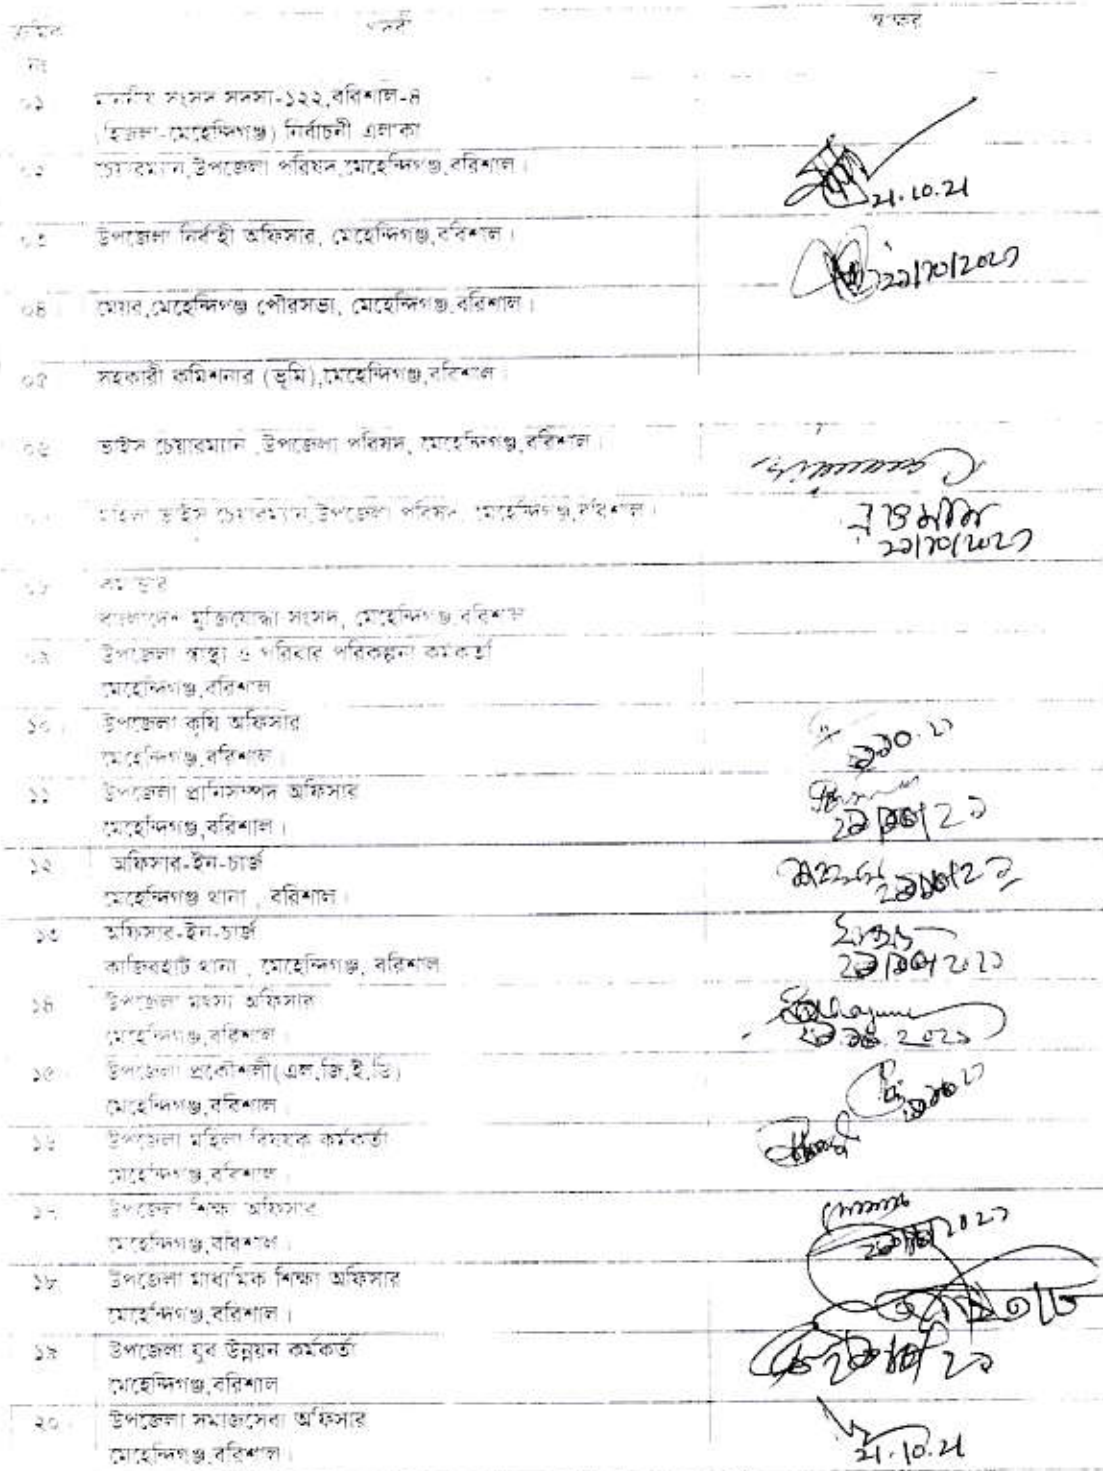 ক্রমিক পদবী স্বাক্ষর
নং
০১ মাননীয় সংসদ সদস্য-১২২,বরিশাল-৪
(হিজলা-মেহেন্দিগঞ্জ) নির্বাচনী এলাকা
০২ চেয়ারম্যান,উপজেলা পরিষদ,মেহেন্দিগঞ্জ,বরিশাল।
21.10.21
০৩ উপজেলা নির্বাহী অফিসার, মেহেন্দিগঞ্জ,বরিশাল।
০৪ মেয়র,মেহেন্দিগঞ্জ পৌরসভা, মেহেন্দিগঞ্জ,বরিশাল।
০৫ সহকারী কমিশনার (ভূমি),মেহেন্দিগঞ্জ,বরিশাল।
০৬ ভাইস চেয়ারম্যান ,উপজেলা পরিষদ, মেহেন্দিগঞ্জ,বরিশাল।
০৭ মহিলা ভাইস চেয়ারম্যান,উপজেলা পরিষদ, মেহেন্দিগঞ্জ,বরিশাল।
২১/১০/২০২১
০৮ কমান্ডার
বাংলাদেশ মুক্তিযোদ্ধা সংসদ, মেহেন্দিগঞ্জ,বরিশাল
০৯ উপজেলা স্বাস্থ্য ও পরিবার পরিকল্পনা কর্মকর্তা
মেহেন্দিগঞ্জ,বরিশাল
১০ উপজেলা কৃষি অফিসার
মেহেন্দিগঞ্জ,বরিশাল।
১১ উপজেলা প্রানিসম্পদ অফিসার
মেহেন্দিগঞ্জ,বরিশাল।
১২ অফিসার-ইন-চার্জ
মেহেন্দিগঞ্জ থানা , বরিশাল।
১৩ অফিসার-ইন-চার্জ
কাজিরহাট থানা , মেহেন্দিগঞ্জ, বরিশাল
১৪ উপজেলা মৎস্য অফিসার
মেহেন্দিগঞ্জ,বরিশাল।
১৫ উপজেলা প্রকৌশলী(এল,জি,ই,ডি)
মেহেন্দিগঞ্জ,বরিশাল
১৬ উপজেলা মহিলা বিষয়ক কর্মকর্তা
মেহেন্দিগঞ্জ,বরিশাল।
১৭ উপজেলা শিক্ষা অফিসার
মেহেন্দিগঞ্জ,বরিশাল।
১৮ উপজেলা মাধ্যমিক শিক্ষা অফিসার
মেহেন্দিগঞ্জ,বরিশাল।
১৯ উপজেলা যুব উন্নয়ন কর্মকর্তা
মেহেন্দিগঞ্জ,বরিশাল
২০ উপজেলা সমাজসেবা অফিসার
মেহেন্দিগঞ্জ,বরিশাল।
21.10.21